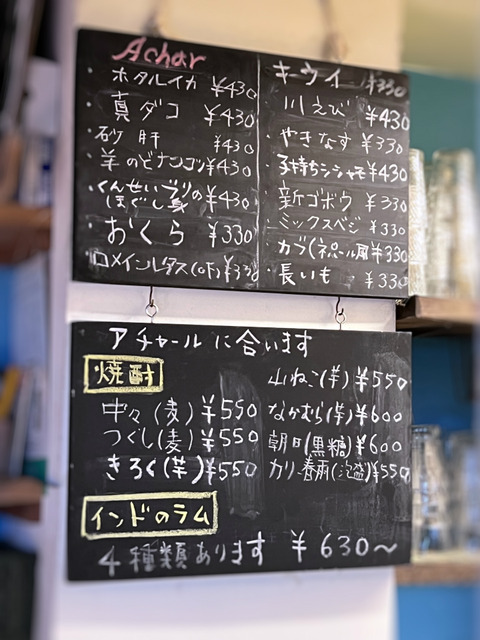 Achar
・ホタルイカ ¥430
・真ダコ ¥430
・砂肝 ¥430
・羊のどナンコツ ¥430
・くんせいブリの
ほぐし身 ¥430
・おくら ¥330
・ロメインレタス(OFF) ¥330
・キーウイ ¥330
川えび ¥430
・やきなす ¥330
子持ちシシャモ ¥430
・新ゴボウ ¥330
・ミックスベジ ¥330
・カブ(ネパール風) ¥330
・長いも ¥330
アチャールに合います
焼酎
中々(麦) ¥550
つくし(麦) ¥550
きろく(芋) ¥550
山ねこ(芋) ¥550
なかむら(芋) ¥600
朝日(黒糖) ¥600
カリー春雨(泡盛) ¥550
インドのラム
4種類あります ¥630〜